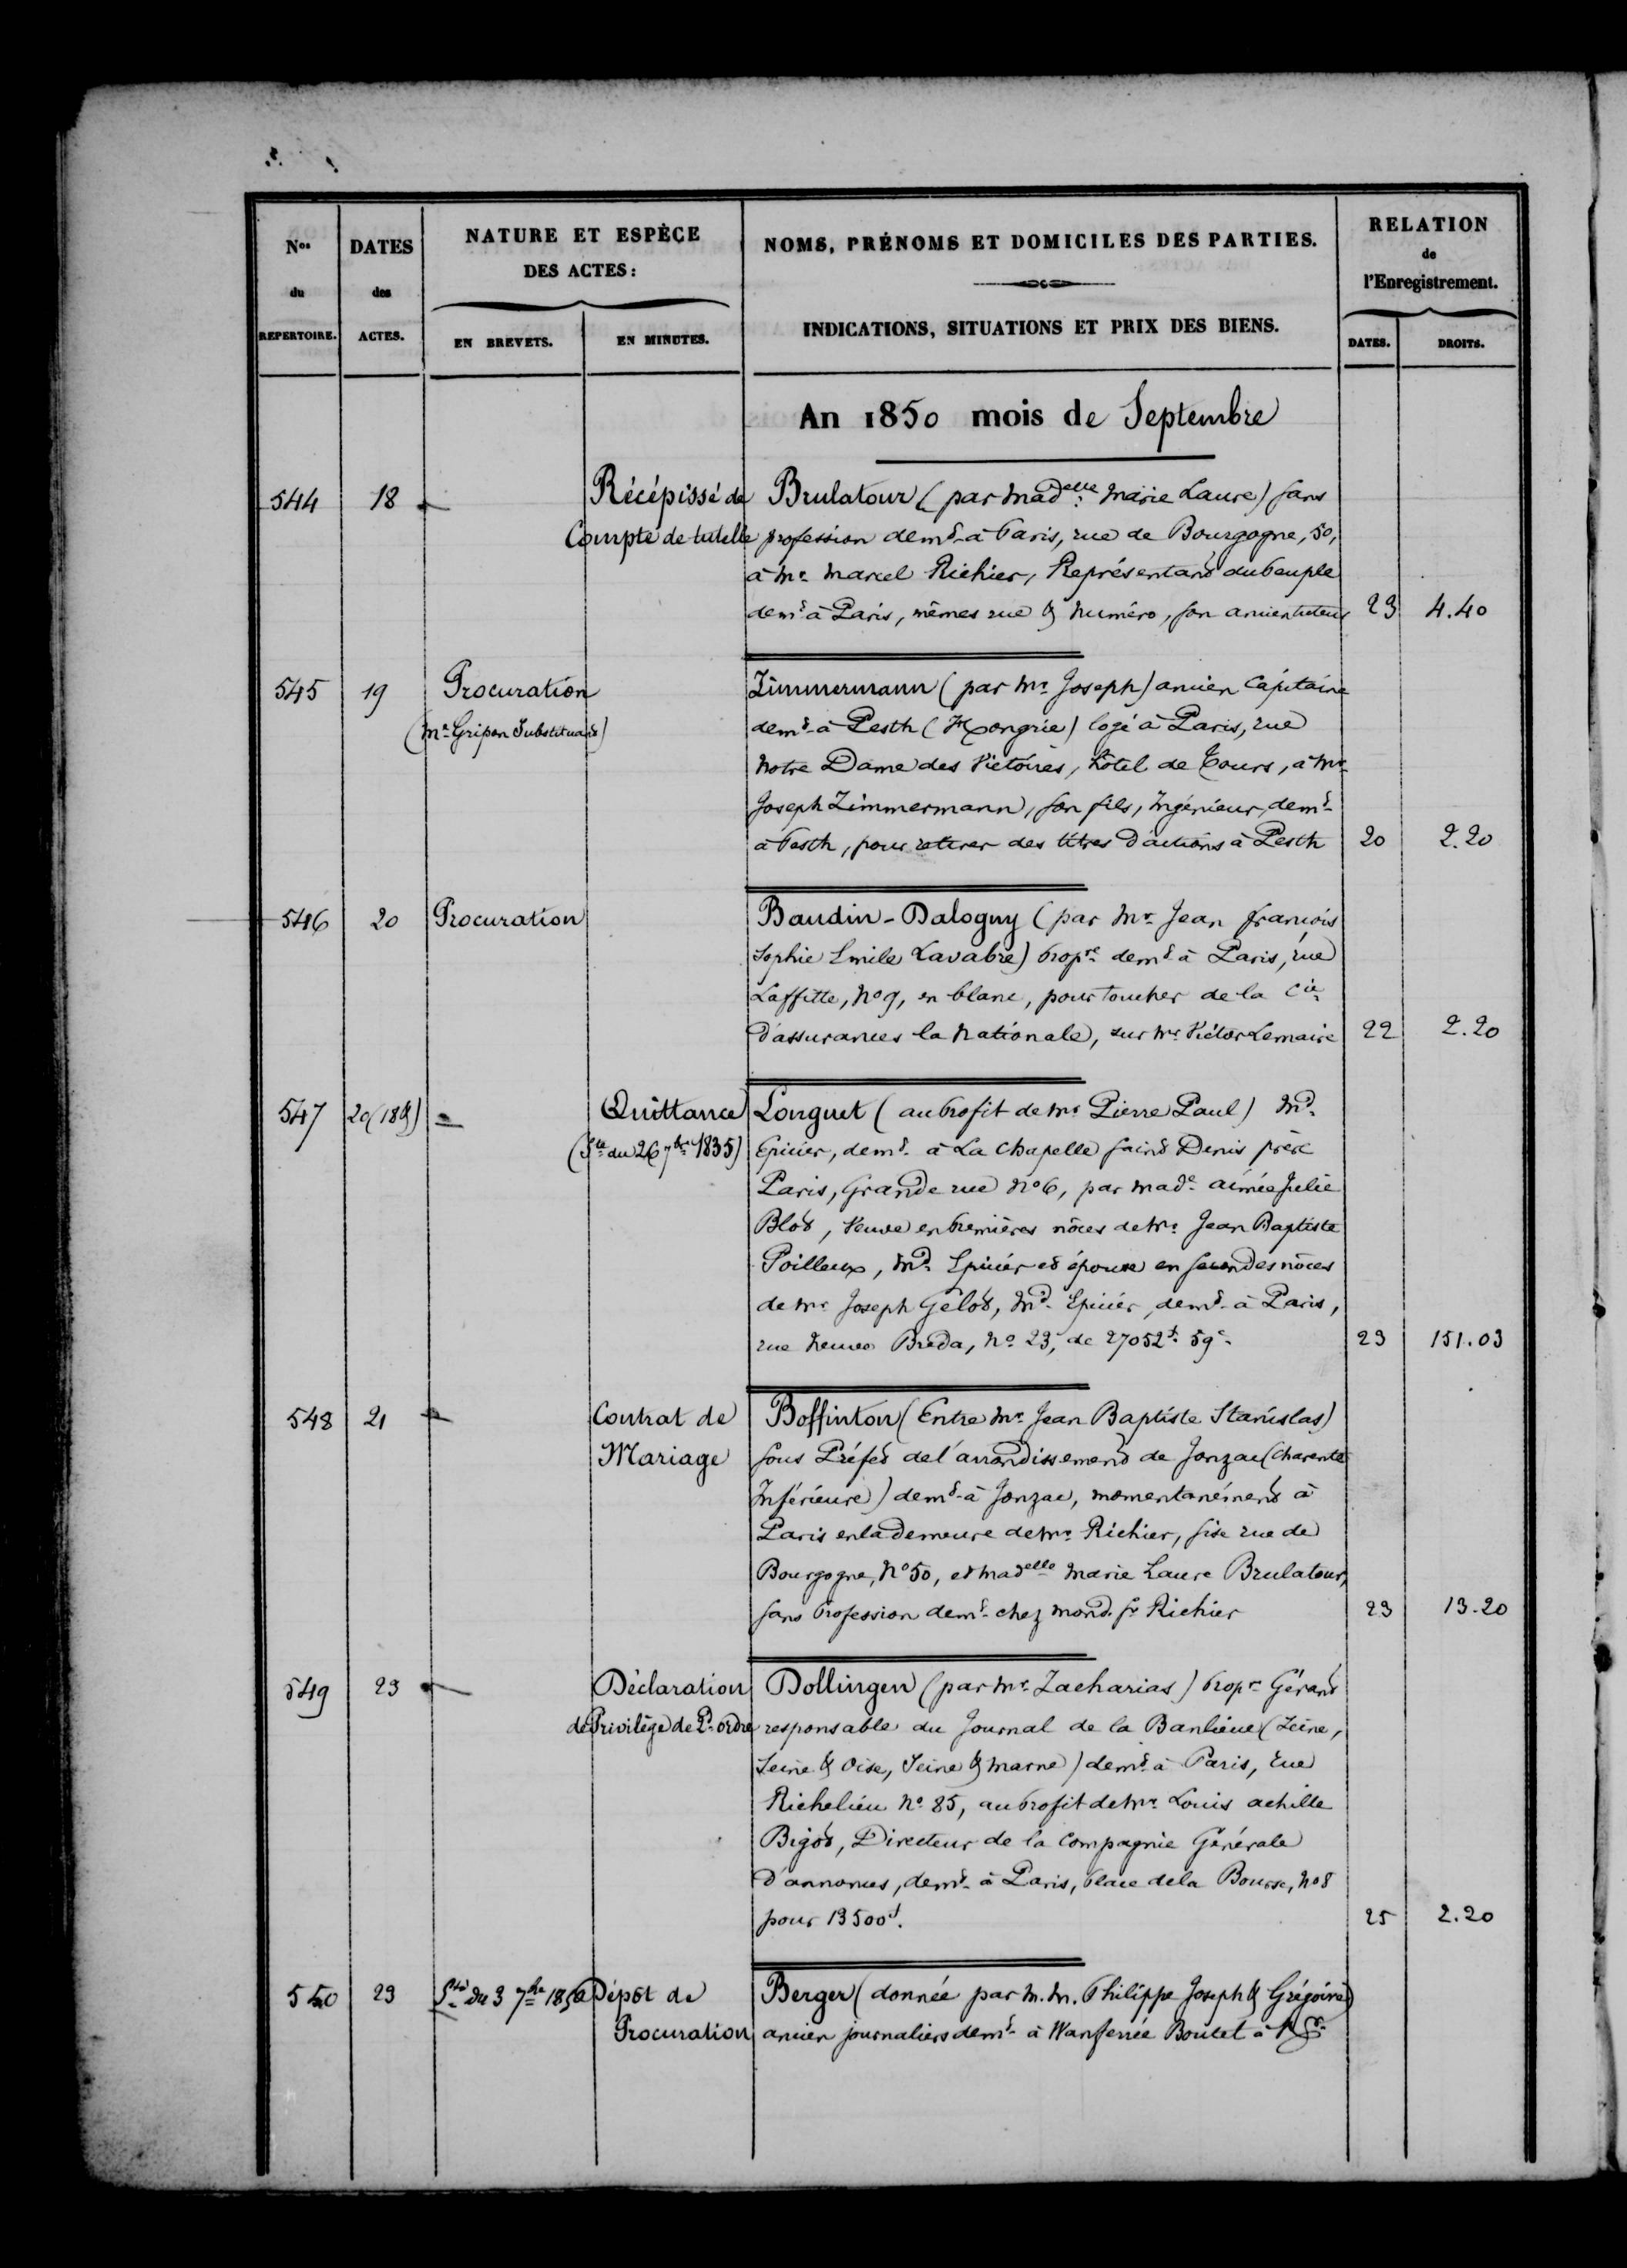 Nos
du
REPERTOIRE.
DATES
des
ACTES.
NATURE ET ESPÈCE
DES ACTES :
EN BREVETS.
EN MINUTES.
NOMS, PRÉNOMS ET DOMICILES DES PARTIES.
INDICATIONS, SITUATIONS ET PRIX DES BIENS.
RELATION
de
l'Enregistrement.
DATES.
DROITS.
An 1850 mois de Septembre
544 18 Récépissé de Brulatour (par Madelle Marie Laure) sans
Compte de tutelle profession demt à Paris, rue de Bourgogne, 50,
à Mr Marcel Richier, Représentant du Peuple
demt à Paris, mêmes rue & Numéro, son ancien tuteur 23 4.40
545 19 Procuration Zimmermann (par Mr Joseph) ancien Capitaine
(Me Gripon Substituant) demt à Pesth (Hongrie) logé à Paris, rue
Notre Dame des Victoires, hôtel de Tours, à Mr
Joseph Zimmermann, son fils, Ingénieur, demt
à Pesth, pour retirer des titres d'actions à Pesth 20 2.20
546 20 Procuration Baudin-Dalogny (par Mr Jean François
Sophie Emile Lavabre) Propre demt à Paris, rue
Laffitte, No 9, en blanc, pour toucher de la Cie
d'assurances la Nationale, sur Mr Victor Lemaire 22 2.20
547 20 (18 &) Quittance Longuet (au Profit de Mr Pierre Paul) Md
(Ste du 26 7bre 1835) Epicier, demt à La Chapelle Saint Denis près
Paris, Grande rue No 6, par Made Aimée Julie
Blot, Veuve en Premières nôces de Mr Jean Baptiste
Poilleux, Md Epicier et épouse en secondes nôces
de Mr Joseph Gélot, Md Epicier, demt à Paris,
rue Neuve Breda, No 23, de 27052f 59c 23 151.03
548 21 Contrat de Boffinton (Entre Mr Jean Baptiste Stanislas)
Mariage Sous Préfet de l'arrondissement de Jonzac (Charente
Inférieure) demt à Jonzac, momentanément à
Paris en la demeure de Mr Richier, sise rue de
Bourgogne, No 50, et Madelle Marie Laure Brulatour,
sans Profession demt chez mond. Sr Richier 23 13.20
549 23 Déclaration Dollingen (par Mr Zacharias) Propre Gérant
de Privilége de 2d ordre responsable du Journal de la Banlieue (Seine,
Seine & Oise, Seine & Marne) demt à Paris, rue
Richelieu No 85, au Profit de Mr Louis Achille
Bigot, Directeur de la Compagnie Générale
d'annonces, demt à Paris, Place de la Bourse, No 8
pour 13500f. 25 2.20
550 23 Ste du 3 7bre 1850 Dépôt de Berger (donnée par M.M. Philippe Joseph & Grégoire)
Procuration ancien journaliers demt à Wanferrée Boulet à